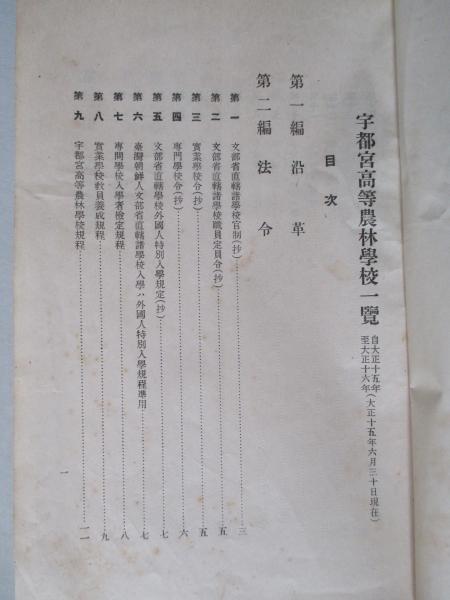 宇都宮高等農林學校一覽 自大正十五年至大正十六年(大正十五年六月三十日現在)
目次
第一編 沿革
第二編 法令
第一 文部省直轄諸學校官制(抄)……三
第二 文部省直轄諸學校職員定員令(抄)……五
第三 實業學校令(抄)……五
第四 專門學校令(抄)……六
第五 文部省直轄學校外國人特別入學規定(抄)……七
第六 臺灣朝鮮人文部省直轄諸學校入學ハ外國人特別入學規程準用……七
第七 專門學校入學者檢定規程……八
第八 實業學校教員養成規程……九
第九 宇都宮高等農林學校規程……一一
一